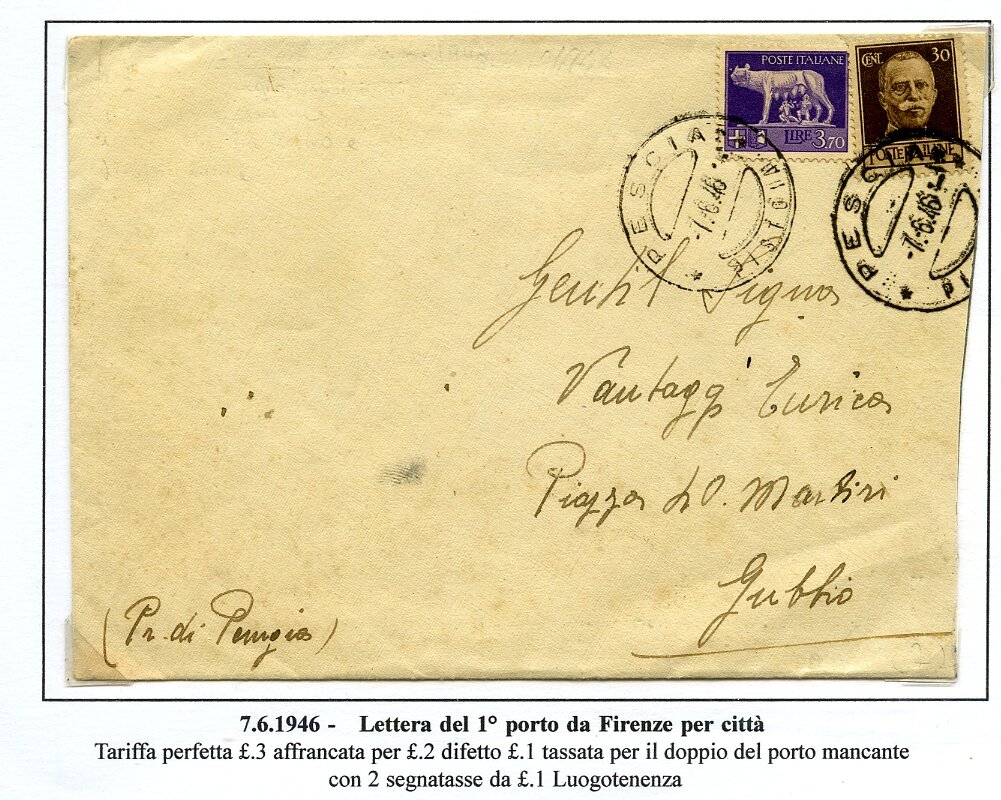 POSTE ITALIANE
LIRE 3,70
CENT. 30
POSTE ITALIANE
PESCIA
PISTOIA
-7.-6.46
PESCIA
-7.-6.46
Gentil Signora
Vantaggi Eurica
Piazza 40 Martiri
Gubbio
(Pr. di Perugia)
7.6.1946 - Lettera del 1° porto da Firenze per città
Tariffa perfetta £.3 affrancata per £.2 difetto £.1 tassata per il doppio del porto mancante
con 2 segnatasse da £.1 Luogotenenza